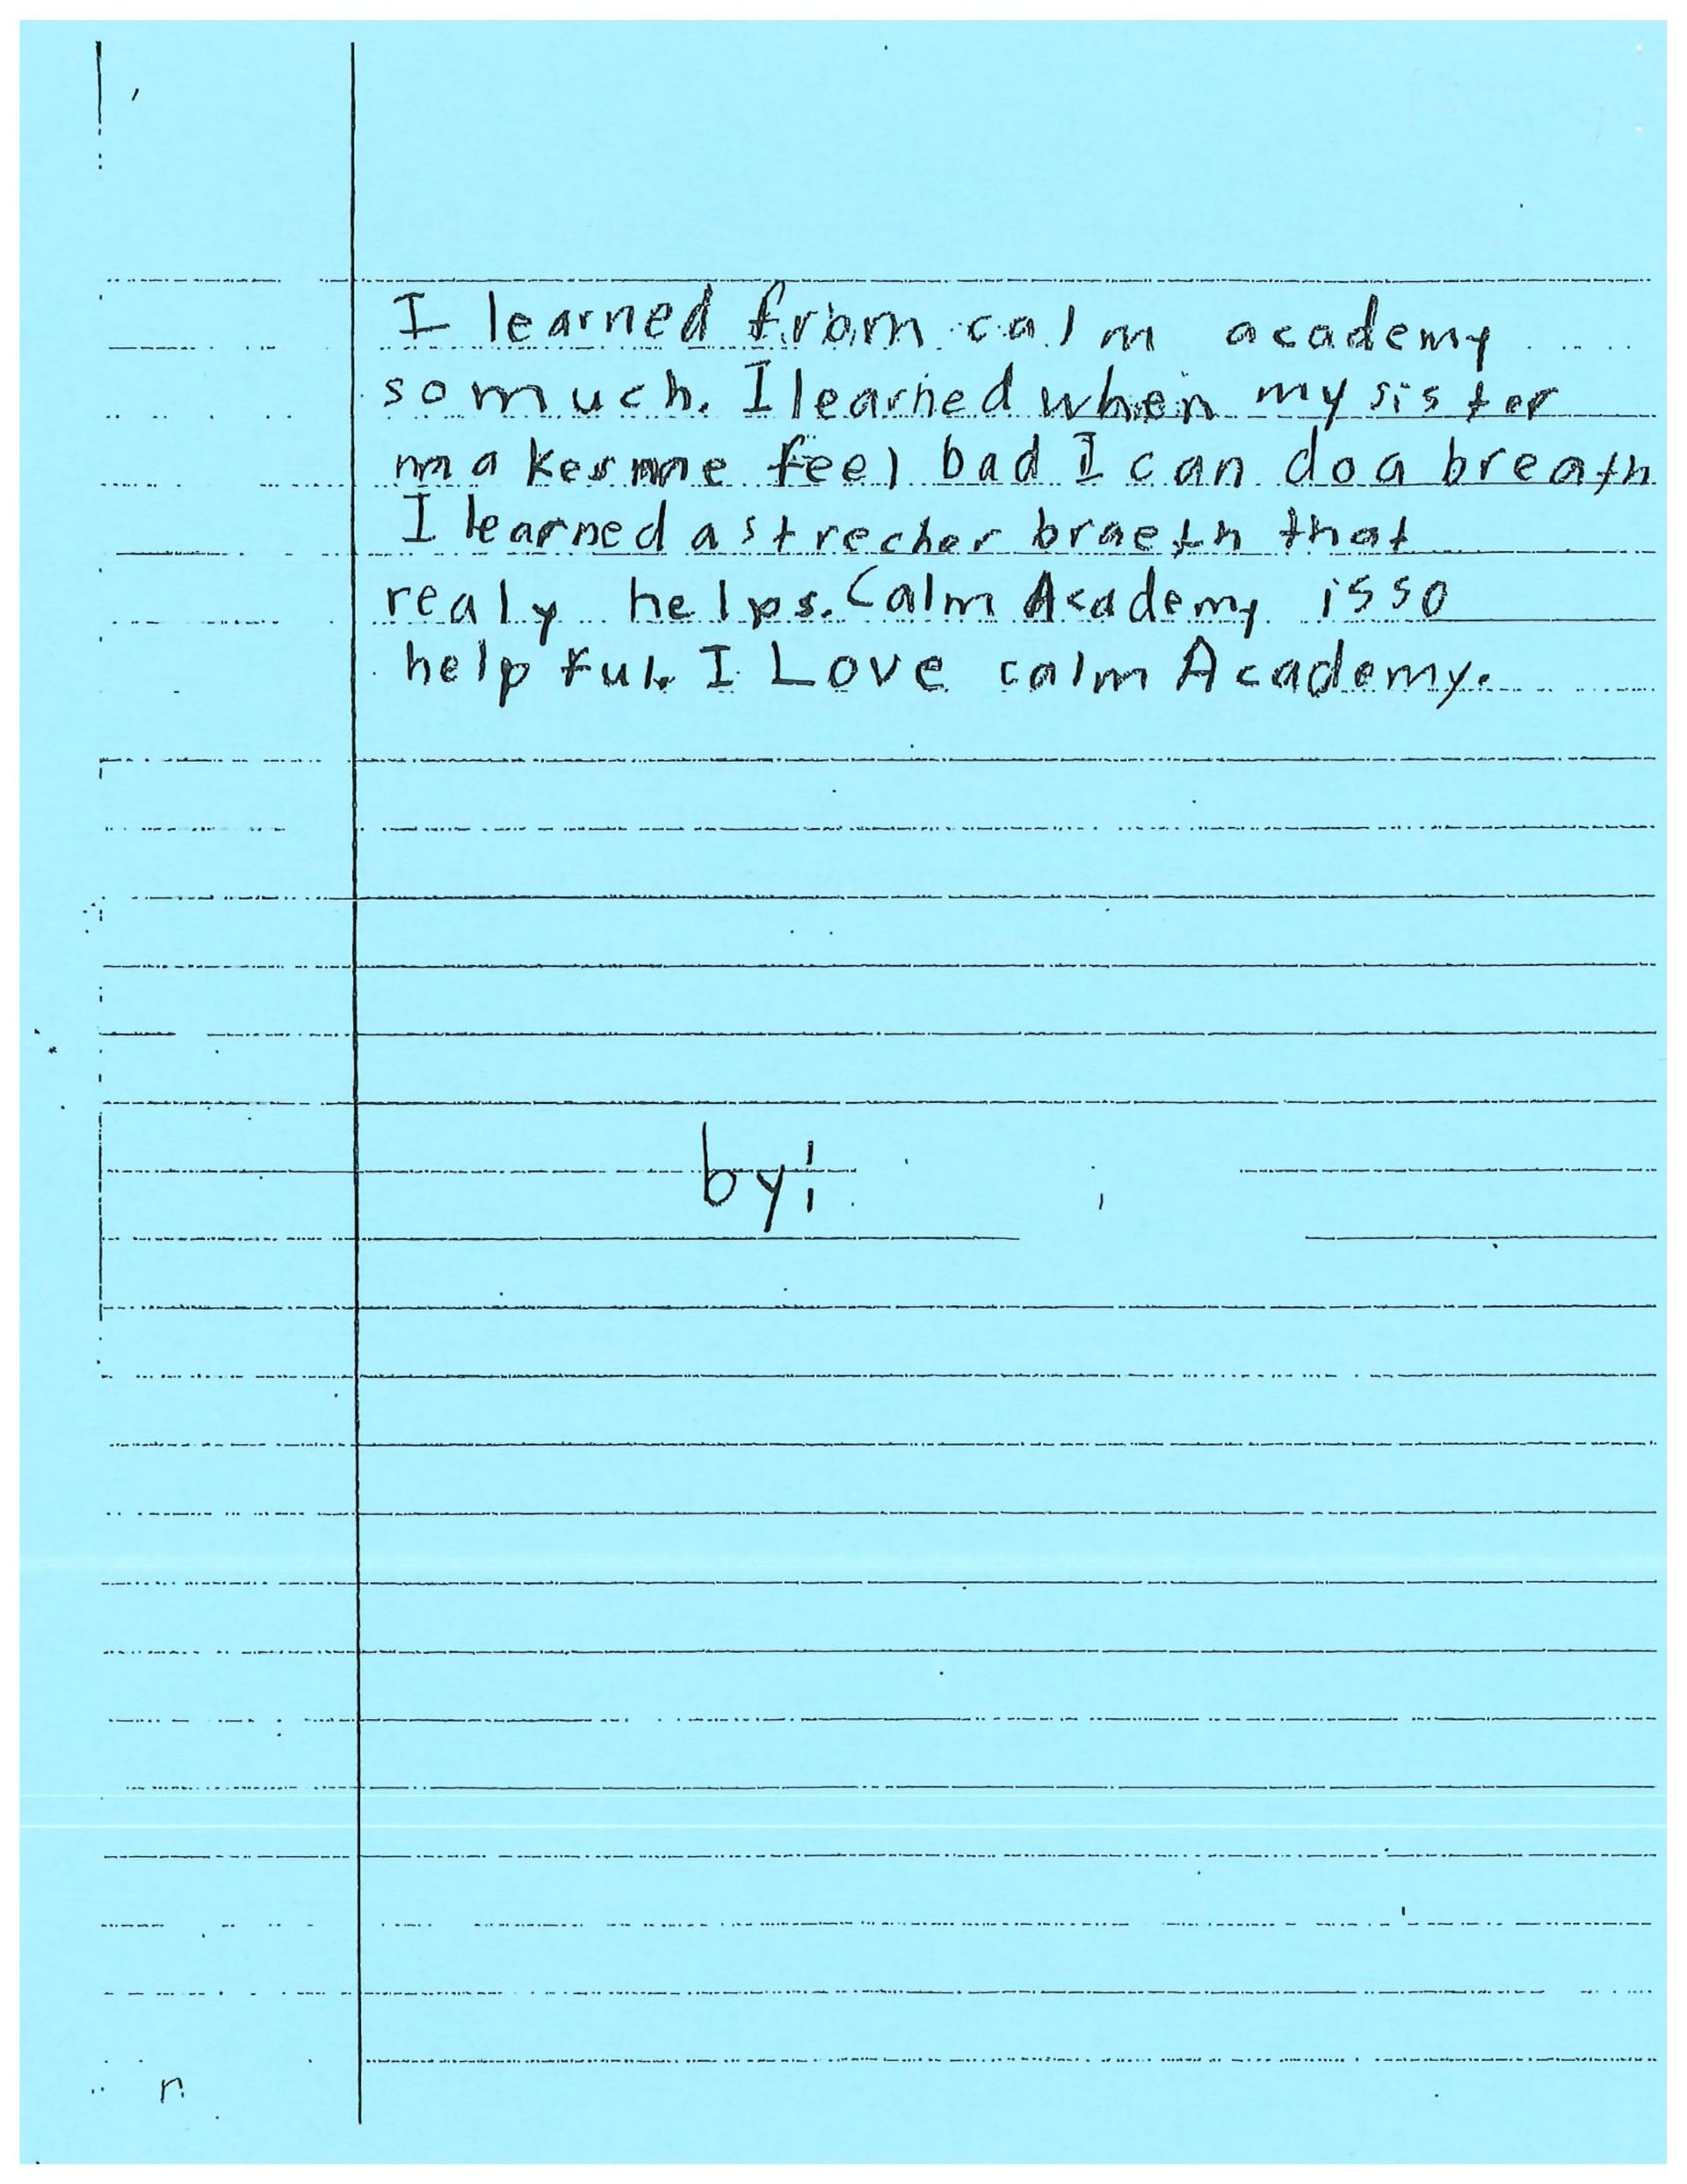 I learned from calm academy
so much. I learned when my sister
makes me feel bad I can do a breath
I learned a strecher braeth that
realy helps. Calm Academy is so
helpful. I Love calm Academy.
by: